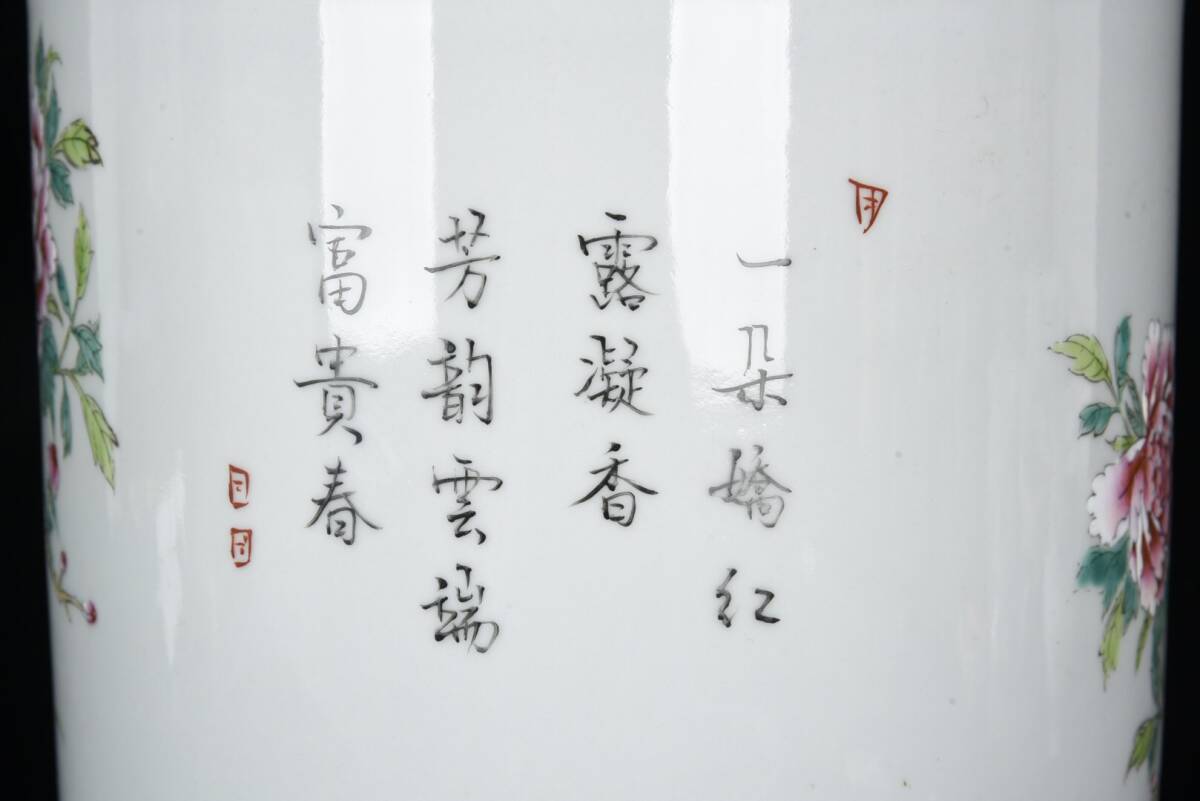 一朵嬌紅
露凝香
芳韵雲端
富貴春